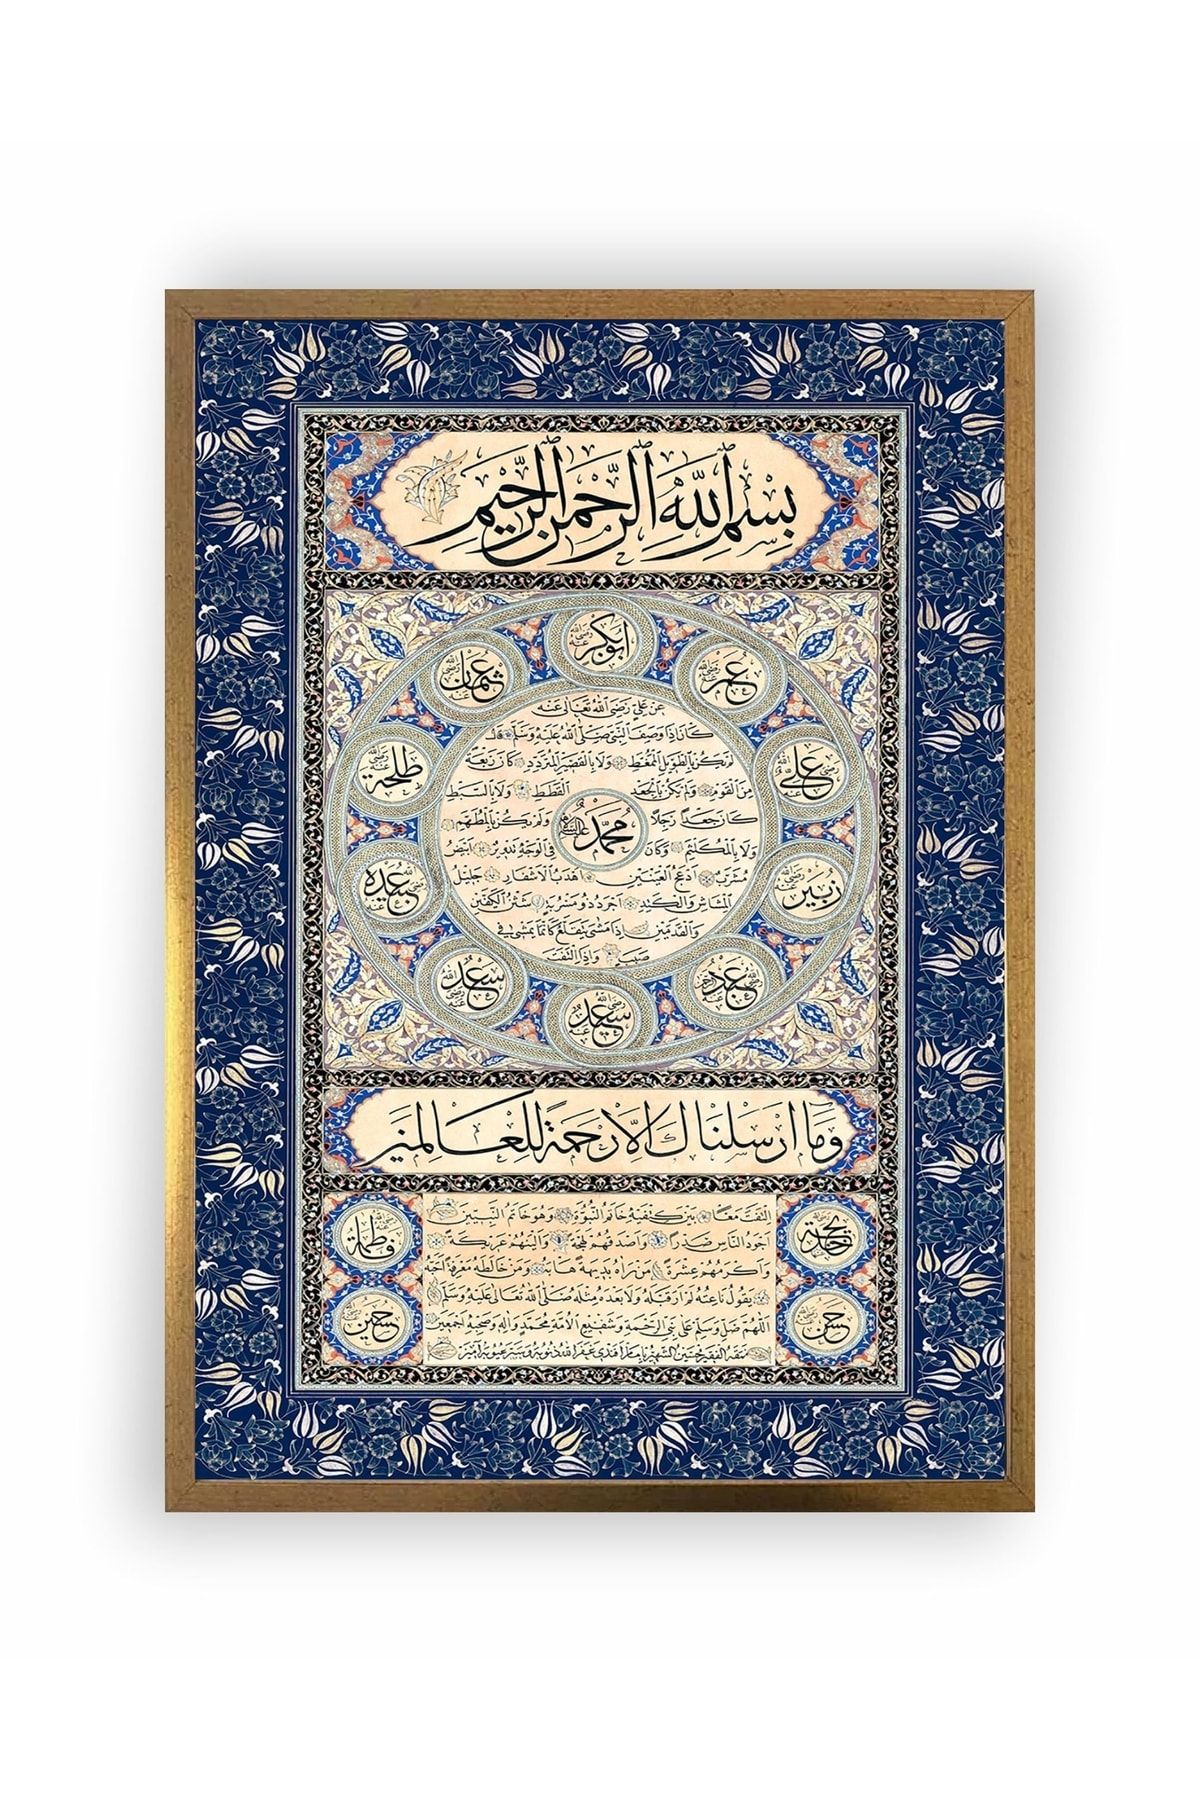 بِسْمِ اللّٰهِ الرَّحْمٰنِ الرَّحِيمِ
ابوبكر رضي الله عنه
عثمان رضي الله عنه
عمر رضي الله عنه
طلحة رضي الله عنه
علي رضي الله عنه
زبير رضي الله عنه
سعد رضي الله عنه
سعيد رضي الله عنه
عن علي رضي الله تعالى عنه
كان اذا وصف النبي صلى الله عليه وسلم قال
لم يكن بالطويل الممغط ولا بالقصير المتردد كان ربعة
من القوم ولم يكن بالجعد القطط ولا بالسبط
كان جعدا رجلا ولم يكن بالمطهم
محمد عليه السلام
ولا بالمكلثم وكان في الوجه تدوير ابيض
مشرب ادعج العينين اهدب الاشفار جليل
المشاش والكتد اجرد ذو مسربة شثن الكفين
والقدمين اذا مشى يتقلع كانما يمشي في
صبب واذا التفت
وما ارسلناك الا رحمة للعالمين
خديجة
فاطمة
حسن
حسين
التفت معا بين كتفيه خاتم النبوة وهو خاتم النبيين
اجود الناس صدرا واصدقهم لهجة والينهم عريكة
واكرمهم عشرة من رآه بديهة هابه ومن خالطه معرفة احبه
يقول ناعته لم ار قبله ولا بعده مثله صلى الله تعالى عليه وسلم
اللهم صل وسلم على نبي الرحمة وشفيع الامة محمد وآله وصحبه اجمعين